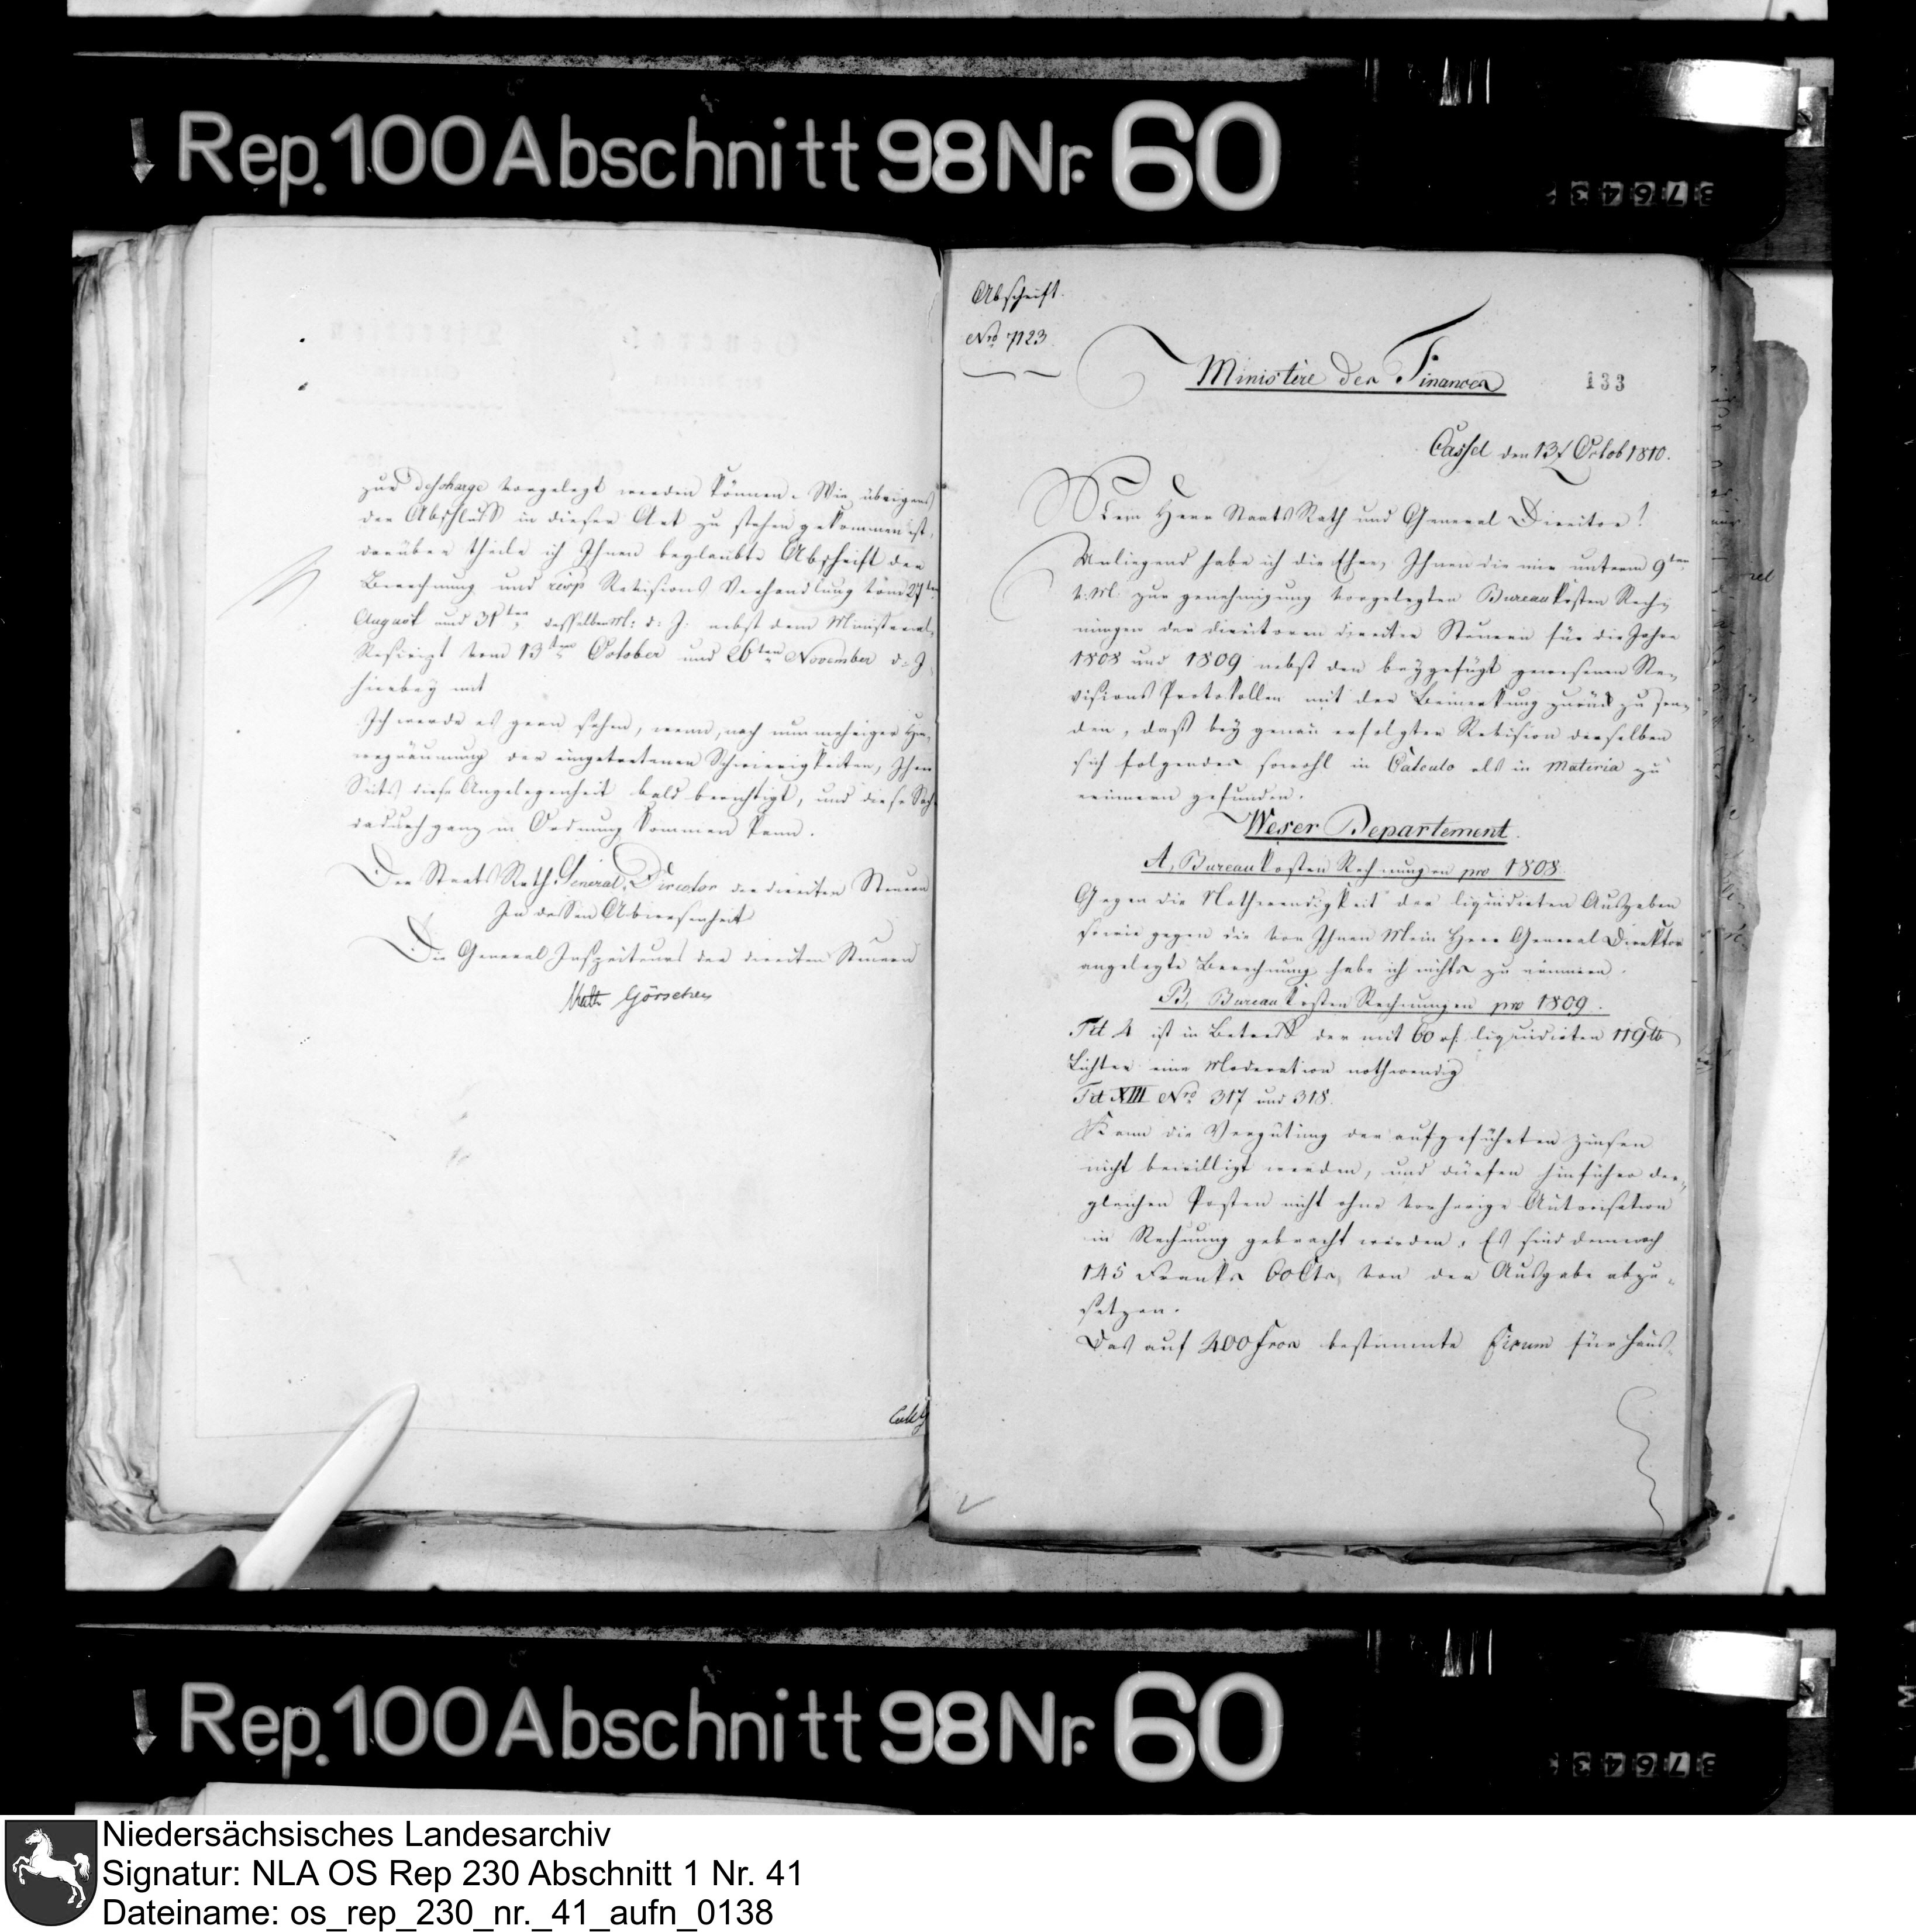 Rep. 100 Abschnitt 98 Nr. 60
37643
zur Descharge vorgelegt werden können. Wie übrigens
der Abschluß in dieser Art zu stehen gekommen ist,
darüber theile ich Ihnen beglaubte Abschrift der
Berechnung und resp Revisions Verhandlung vom 27ten
August und 31ten desselben M: d: J: nebst dem Ministerial
Rescript vom 13ten October und 26ten November d: J
hierbey mit
Ich werde es gern sehen, wenn, nach nunmehriger Hin-
wegräumung der eingetretenen Schwierigkeiten, Ihrer
Seits diese Angelegenheit bald berichtigt, und diese Sache
dadurch ganz in Ordnung kommen kann.
Der Staats Rath General Director der directen Steuern
In dessen Abwesenheit
Die General Inspecteurs der directen Steuern
Malt Görschen
Abschrift.
Nro 7123
Ministère des Finances
133
Cassel den 13t Octob 1810.
Mein Herr Staats Rath und General Director!
Anliegend habe ich die Ehre, Ihnen die mir unterm 9ten
v. M. zur genehmigung vorgelegten Bureaukosten Rech-
nungen der directoren directer Steuern für die Jahre
1808 und 1809 nebst den beygefügt gewesenen Re-
visions Protokollen mit der Bemerkung zurück zu sen-
den, daß bey genau erfolgter Revision derselben
sich folgendes sowohl in Calculo als in Materia zu
erinnern gefunden.
Weser Departement.
A, Bureaukosten Rechnungen pro 1808
Gegen die Nothwendigkeit der liquidirten Ausgaben
sowie gegen die von Ihnen Mein Herr General Direktor
angelegte Berechnung habe ich nichts zu erinnern.
B, Bureaukosten Rechnungen pro 1809.
Tit 4 ist in Betreff der mit 60 rf. liquidirten 119 lb
Lichter eine Moderation nothwendig
Tit XIII Nro 317 und 318.
Kann die Vergütung der aufgeführten Zinsen
nicht bewilligt werden, und dürfen hinführo der-
gleichen Posten nicht ohne vorherige Autorisation
in Rechnung gebracht werden. Es sind demnach
145 Franks 60 Cts, von der Ausgabe abzu-
setzen.
Das auf 400 Frcs bestimmte Fixum für Haus-
Rep. 100 Abschnitt 98 Nr. 60
37643
Niedersächsisches Landesarchiv
Signatur: NLA OS Rep 230 Abschnitt 1 Nr. 41
Dateiname: os_rep_230_nr._41_aufn_0138